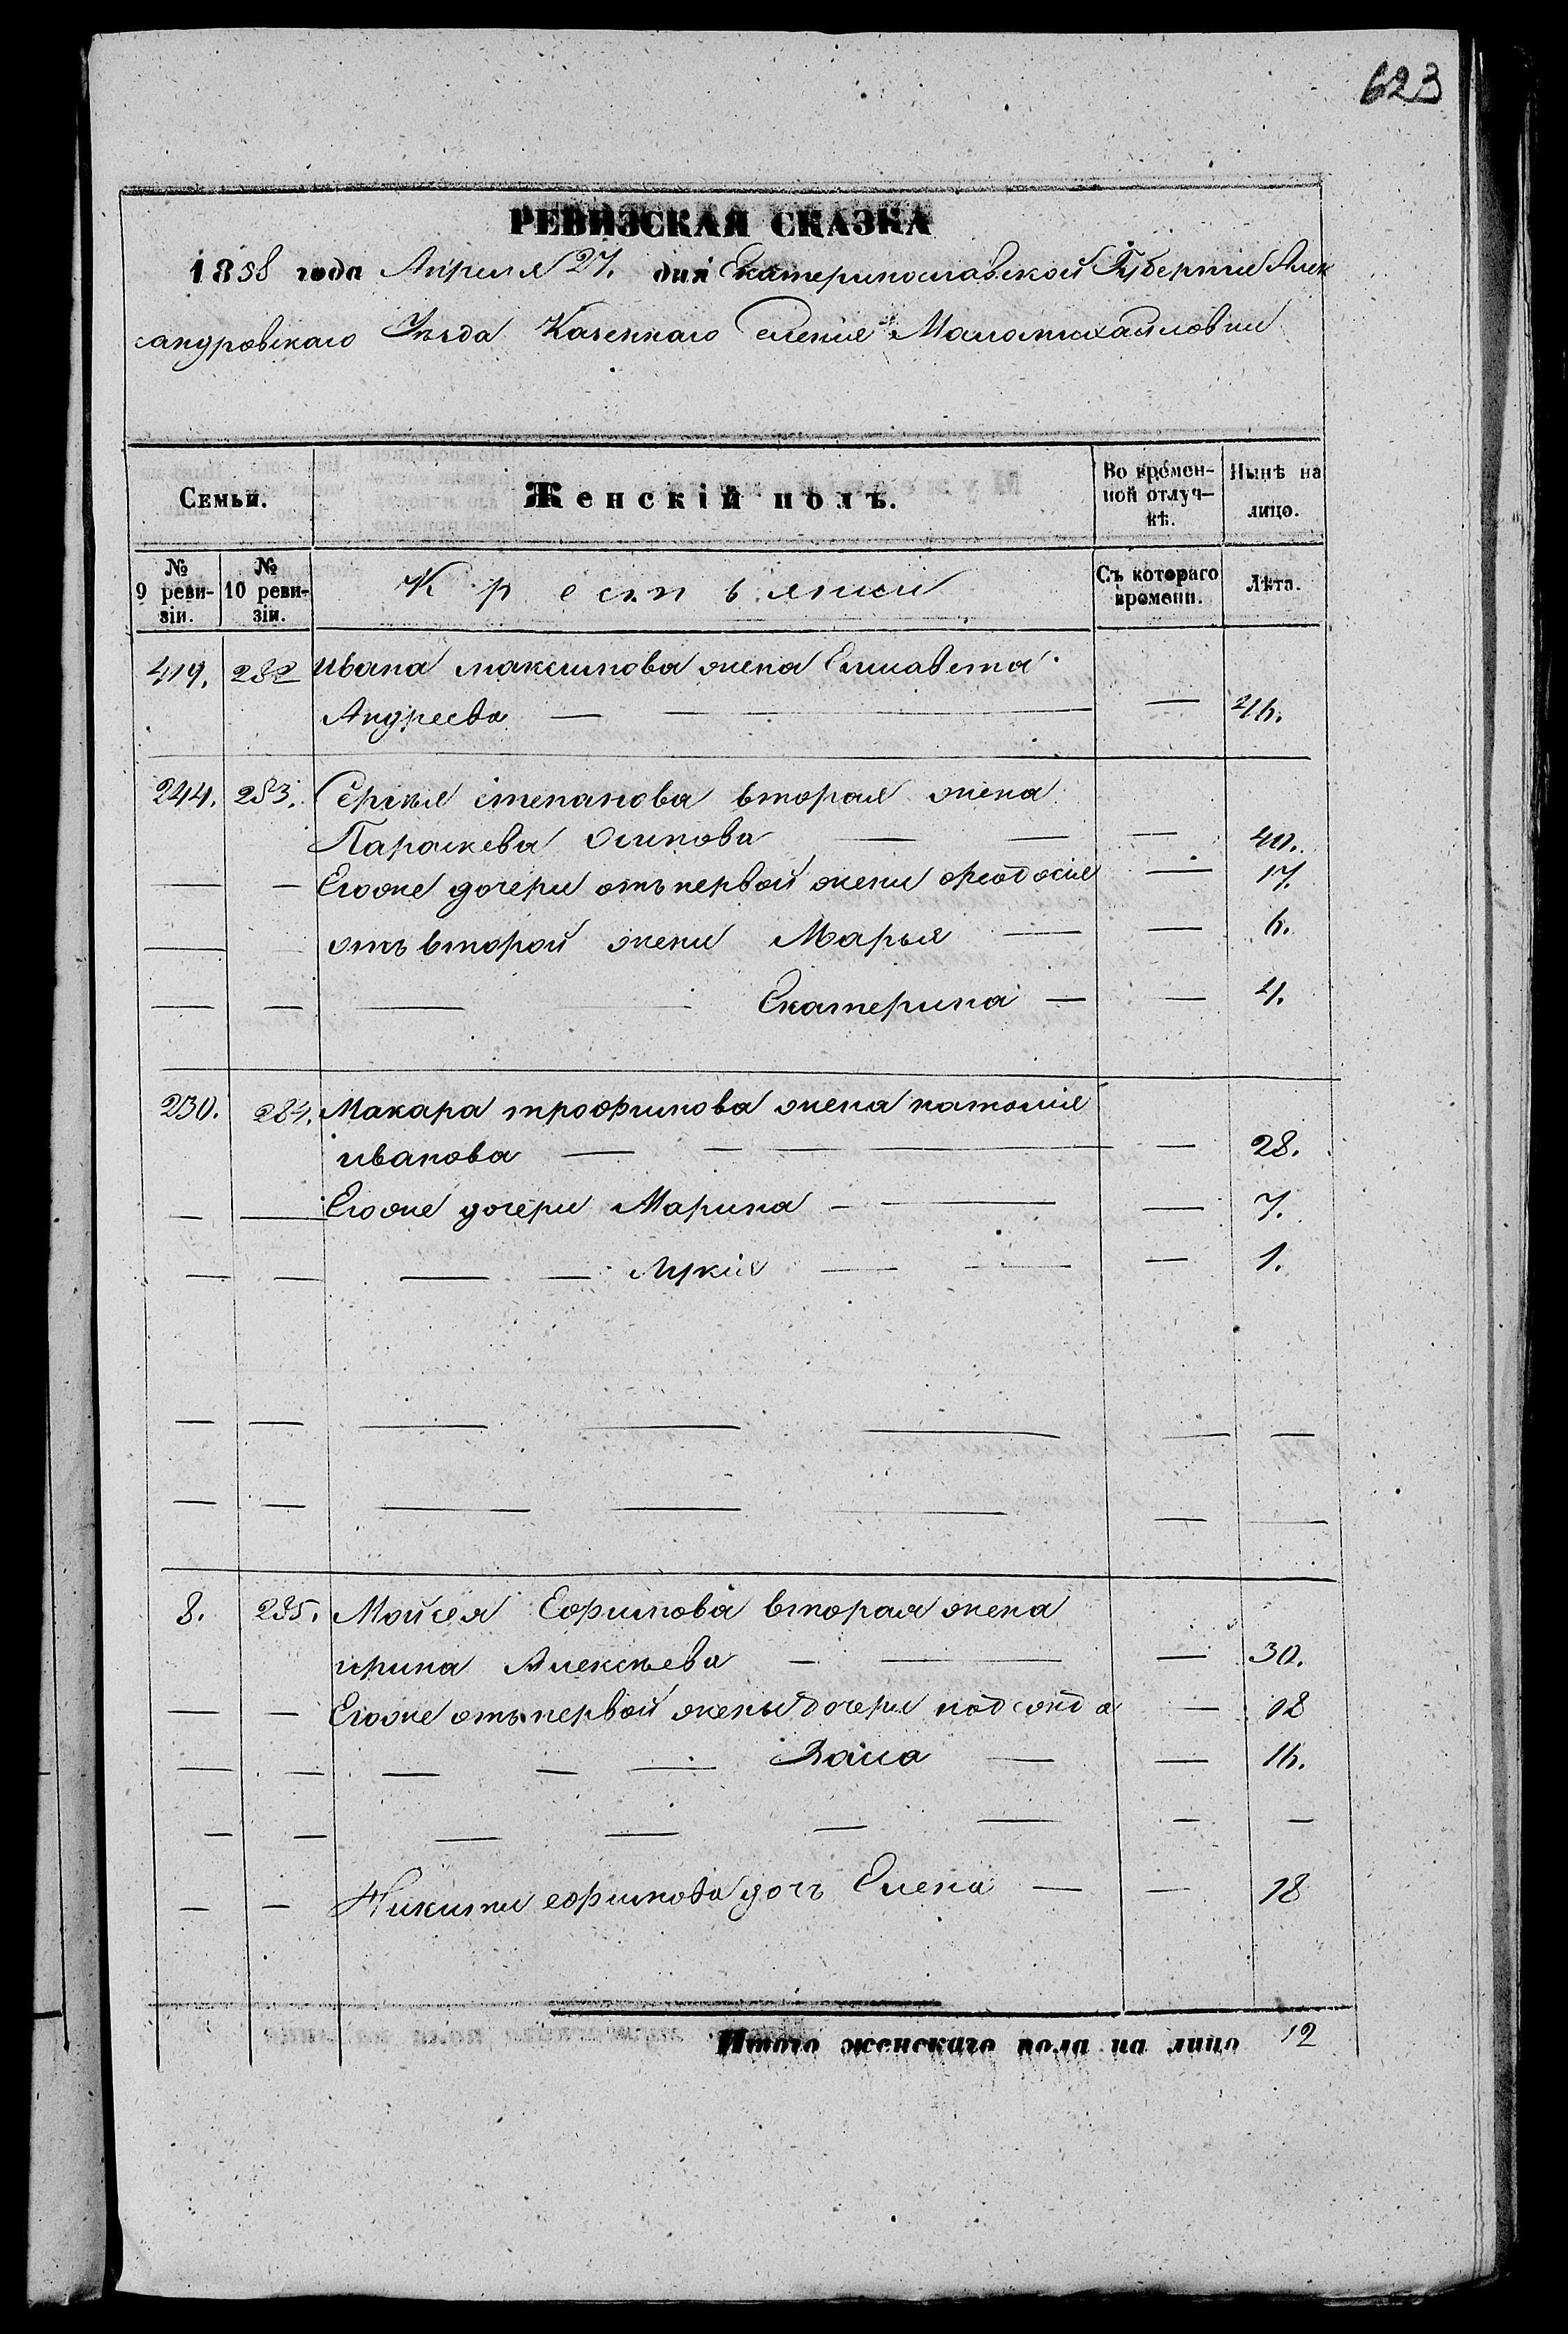 623
РЕВИЗСКАЯ СКАЗКА
1858 года Апреля 27. дня Екатеринославской Губернии Алек
сандровскаго Уѣзда Казеннаго селенія Маломихайловки
Семьи. Женскій полъ. Во времен- Нынѣ на
ной отлуч- лицо.
кѣ.
№ № Крестьянки Съ котораго Лѣта.
9 реви- 10 реви- времени.
зіи. зіи.
419. 282 Ивана максимова жена Елисавета
Андреева — — — — —
244. 283. Сергѣя степанова вторая жена
Параскева Осипова — — — 40.
— — Егоже дочери отъ первой жени Феодосія — 17.
— — отъ второй жени Марья — — 6.
— — — — Екатерина — — 4.
230. 284. Макара трофимова жена наталія
иванова — — — — — 28.
— — Егоже дочери Марина — — — 7.
— — — — Лукія — — — 1.
— — — — — — —
— — — — — — —
8. 285. Мойсея Ефимова вторая жена
ирина Алексѣева — — — 30.
— — Егоже отъ первой жены дочери — 18
— — — — — — — 16.
— — — — — — — —
— — Никити ефимова дочъ Елена — — 18
Итого женскаго пола на лицо 12